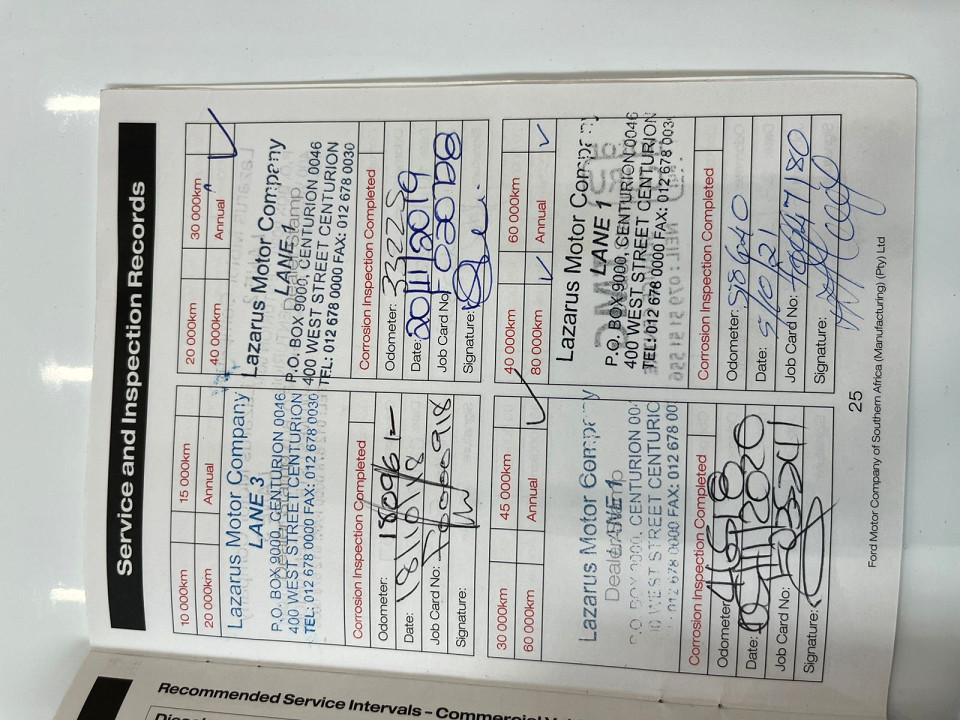 Service and Inspection Records
10 000km 15 000km
20 000km Annual
Lazarus Motor Company
LANE 3
P.O. BOX 9000, CENTURION 0046
400 WEST STREET CENTURION
TEL: 012 678 0000 FAX: 012 678 0030
Corrosion Inspection Completed
Odometer: 18096
Date: 18/10/18
Job Card No:
Signature:
20 000km 30 000km
40 000km Annual
Lazarus Motor Company
LANE 1
Dealer Stamp
P.O. BOX 9000, CENTURION 0046
400 WEST STREET CENTURION
TEL: 012 678 0000 FAX: 012 678 0030
Corrosion Inspection Completed
Odometer: 33225
Date: 20/11/2019
Job Card No:
Signature:
30 000km 45 000km
60 000km Annual
Lazarus Motor Company
Dealer
LANE 1
P.O. BOX 9000, CENTURION 004
400 WEST STREET CENTURIO
012 678 0000 FAX: 012 678 00
Corrosion Inspection Completed
Odometer:
Date:
Job Card No:
Signature:
40 000km 60 000km
80 000km Annual
Lazarus Motor Company
LANE 1
P.O. BOX 9000, CENTURION 0046
400 WEST STREET CENTURION
TEL: 012 678 0000 FAX: 012 678 003
Corrosion Inspection Completed
Odometer: 58640
Date: 5/10/21
Job Card No:
Signature:
25
Ford Motor Company of Southern Africa (Manufacturing) (Pty) Ltd
Recommended Service Intervals – Commercial